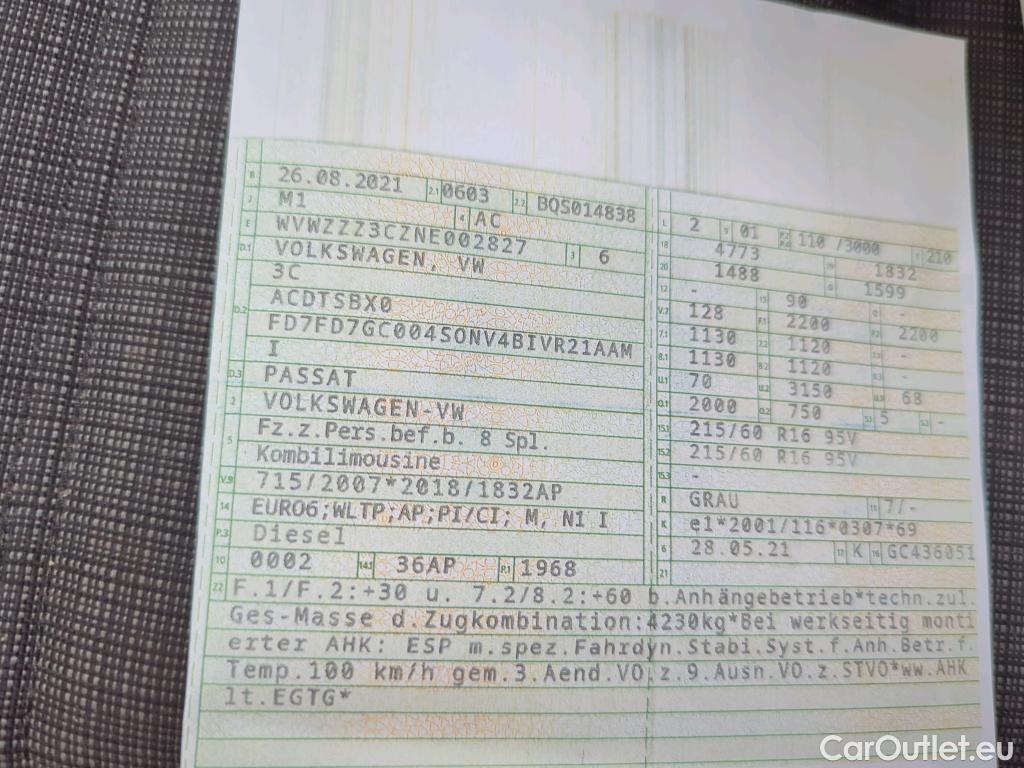 B 26.08.2021 2.1 0603 2.2 BQS014838
J M1 4 AC
E WVWZZZ3CZNE002827 3 6
D.1 VOLKSWAGEN, VW
3C
D.2 ACDTSBX0
FD7FD7GC004SONV4BIVR21AAM
I
D.3 PASSAT
2 VOLKSWAGEN-VW
5 Fz.z.Pers.bef.b. 8 Spl.
Kombilimousine
V.9 715/2007*2018/1832AP
14 EURO6;WLTP;AP;PI/CI; M, N1 I
P.3 Diesel
10 0002 14.1 36AP P.1 1968
L 2 9 01 P.2 P.4 110 /3000 T 210
18 4773 19 1832
20 1488 G 1599
12 - 13 90 Q -
V.7 128 F.1 2200 F.2 2200
7.1 1130 7.2 1120 7.3 -
8.1 1130 8.2 1120 8.3 -
U.1 70 U.2 3150 U.3 68
O.1 2000 O.2 750 S.1 5 S.2 -
15.1 215/60 R16 95V
15.2 215/60 R16 95V
15.3 -
R GRAU 11 7/-
K e1*2001/116*0307*69
6 28.05.21 17 K 16 GC436051
21
22 F.1/F.2:+30 u. 7.2/8.2:+60 b.Anhängebetrieb*techn.zul.
Ges-Masse d.Zugkombination:4230kg*Bei werkseitig monti
erter AHK: ESP m.spez.Fahrdyn.Stabi.Syst.f.Anh.Betr.f.
Temp.100 km/h gem.3.Aend.VO.z.9.Ausn.VO.z.STVO*ww.AHK
lt.EGTG*
CarOutlet.eu